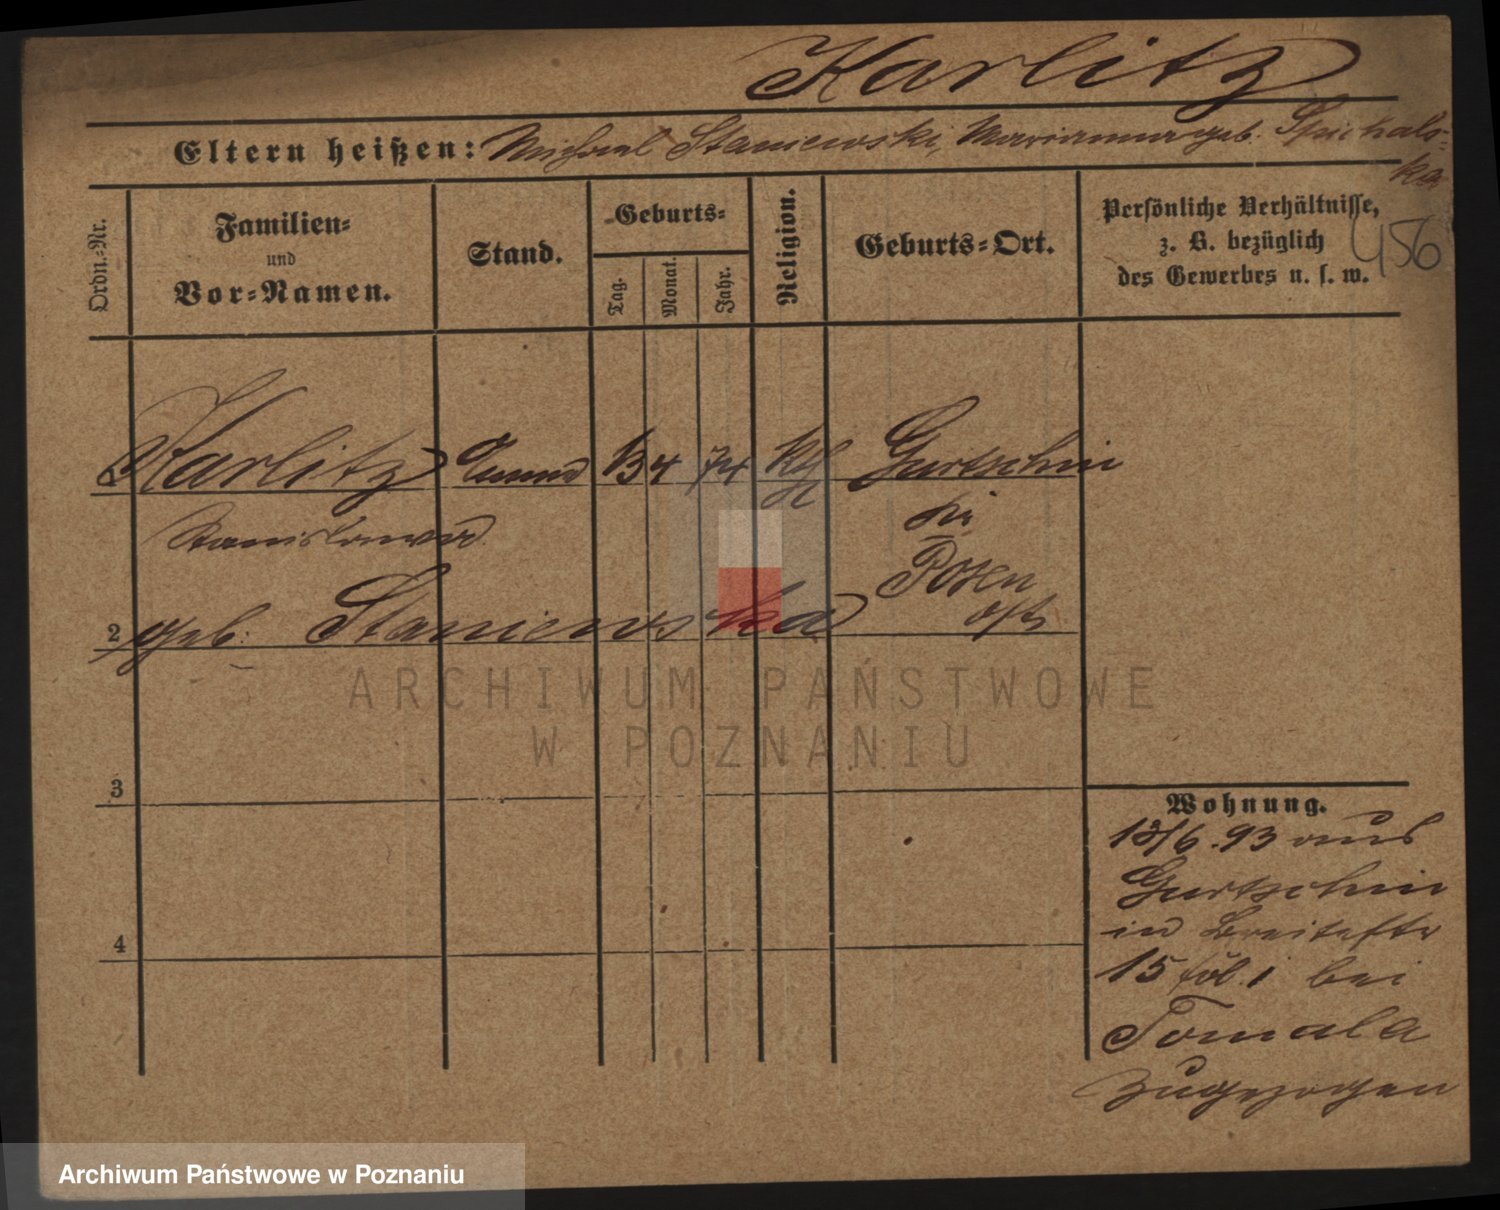 Karlitz
Eltern heißen: Michael Staniewski, Marianna geb. Spichals-
ka
Ordn.-Nr.
Familien-
und
Vor-Namen.
Stand.
Geburts-
Tag.
Monat.
Jahr.
Religion.
Geburts-Ort.
Persönliche Verhältnisse,
z. B. bezüglich
des Gewerbes u. s. w.
456
Karlitz 13 4 74 kth Gurtschin
Stanislawa
Posen
2 geb. Staniewska
ost
3
4
Wohnung.
13/6.93 aus
Gurtschin
in Breitestr
15 bei
Tomala
zugezogen
ARCHIWUM PAŃSTWOWE
W POZNANIU
Archiwum Państwowe w Poznaniu